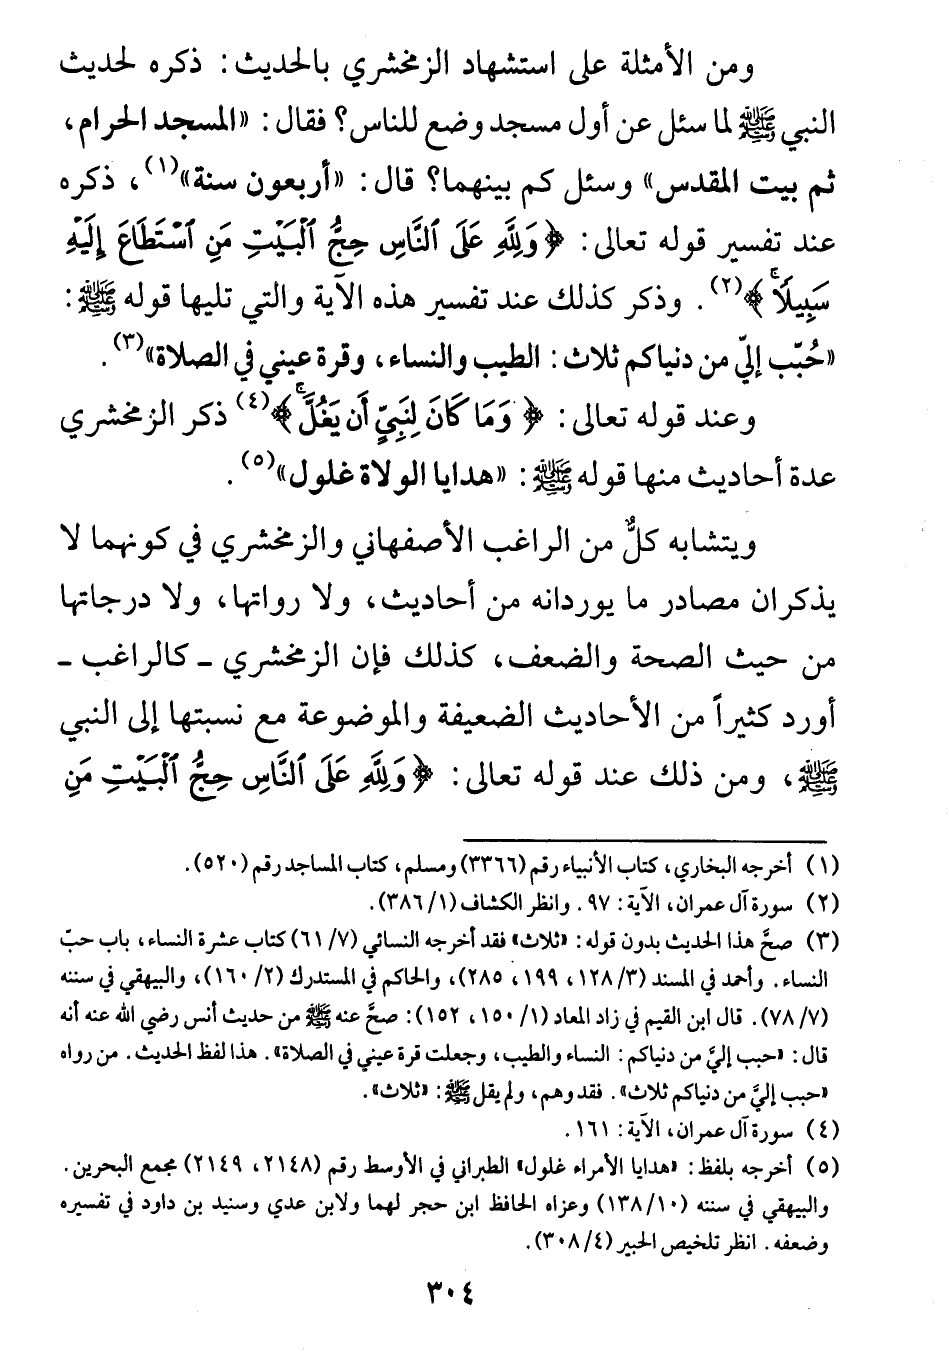 ومن الأمثلة على استشهاد الزمخشري بالحديث: ذكره لحديث
النبي ﷺ لما سئل عن أول مسجد وضع للناس؟ فقال: «المسجد الحرام،
ثم بيت المقدس» وسئل كم بينهما؟ قال: «أربعون سنة»(١)، ذكره
عند تفسير قوله تعالى: ﴿وَلِلَّهِ عَلَى ٱلنَّاسِ حِجُّ ٱلْبَيْتِ مَنِ ٱسْتَطَاعَ إِلَيْهِ
سَبِيلًاۚ﴾(٢). وذكر كذلك عند تفسير هذه الآية والتي تليها قوله ﷺ:
«حُبّب إليّ من دنياكم ثلاث: الطيب والنساء، وقرة عيني في الصلاة»(٣).
وعند قوله تعالى: ﴿وَمَا كَانَ لِنَبِيٍّ أَن يَغُلَّۚ﴾(٤) ذكر الزمخشري
عدة أحاديث منها قوله ﷺ: «هدايا الولاة غلول»(٥).
ويتشابه كلٌّ من الراغب الأصفهاني والزمخشري في كونهما لا
يذكران مصادر ما يوردانه من أحاديث، ولا رواتها، ولا درجاتها
من حيث الصحة والضعف، كذلك فإن الزمخشري ـ كالراغب ـ
أورد كثيراً من الأحاديث الضعيفة والموضوعة مع نسبتها إلى النبي
ﷺ، ومن ذلك عند قوله تعالى: ﴿وَلِلَّهِ عَلَى ٱلنَّاسِ حِجُّ ٱلْبَيْتِ مَنِ
(١) أخرجه البخاري، كتاب الأنبياء رقم (٣٣٦٦) ومسلم، كتاب المساجد رقم (٥٢٠).
(٢) سورة آل عمران، الآية: ٩٧. وانظر الكشاف (١/٣٨٦).
(٣) صحَّ هذا الحديث بدون قوله: «ثلاث» فقد أخرجه النسائي (٧/٦١) كتاب عشرة النساء، باب حبّ
النساء. وأحمد في المسند (٣/١٢٨، ١٩٩، ٢٨٥)، والحاكم في المستدرك (٢/١٦٠)، والبيهقي في سننه
(٧/٧٨). قال ابن القيم في زاد المعاد (١/١٥٠، ١٥٢): صحَّ عنه ﷺ من حديث أنس رضي الله عنه أنه
قال: «حبب إليَّ من دنياكم: النساء والطيب، وجعلت قرة عيني في الصلاة». هذا لفظ الحديث. من رواه
«حبب إليَّ من دنياكم ثلاث». فقد وهم، ولم يقل ﷺ: «ثلاث».
(٤) سورة آل عمران، الآية: ١٦١.
(٥) أخرجه بلفظ: «هدايا الأمراء غلول» الطبراني في الأوسط رقم (٢١٤٨، ٢١٤٩) مجمع البحرين.
والبيهقي في سننه (١٠/١٣٨) وعزاه الحافظ ابن حجر لهما ولابن عدي وسنيد بن داود في تفسيره
وضعفه. انظر تلخيص الحبير (٤/٣٠٨).
٣٠٤